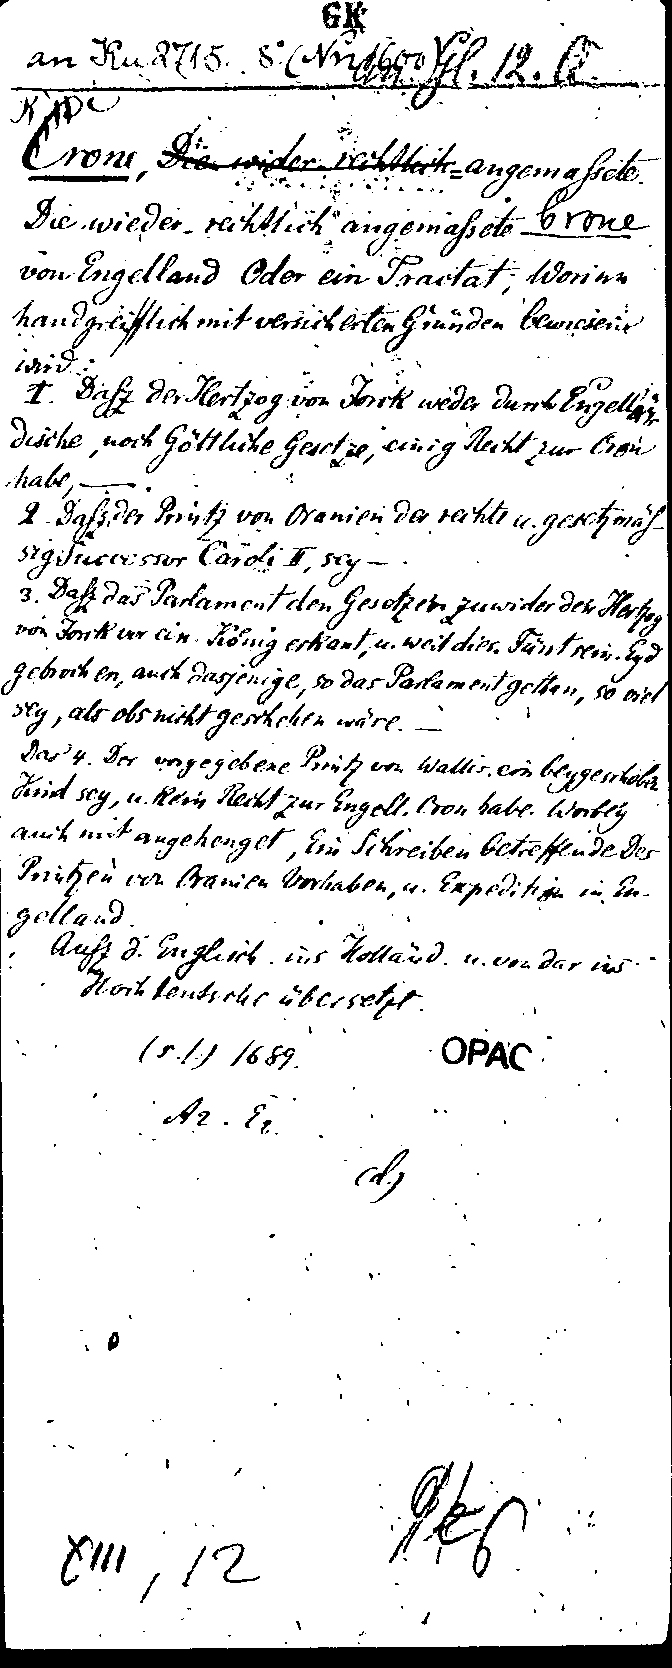 GK
an Ku 2715. 8° (Nr 1600) Gl. 12. a.
Crone, Die wider-rechtlich-angemassete.
Die wieder-rechtlich angemassete Crone
von Engelland Oder ein Tractat, Worinn
handgreifflich mit versicherten Gründen bewiesen
wird:
1. Dasz der Hertzog von Jorck weder durch Engellän-
dische, noch Göttliche Gesetze, einig Recht zur Cron
habe, —.
2. Dasz der Printz von Oranien der rechte u. gesetzmäs-
sig Successor Caroli II, sey —.
3. Dasz das Parlament den Gesetzen zuwider den Hertzog
von Jorck vor ein König erkant, u. weil dies. Fürst sein. Eyd
gebrochen, auch dasjenige, so das Parlament gethan, so viel
sey, als obs nicht geschehen wäre. —
Das 4. Der vorgegebene Printz von Wallis ein beygeschoben
Kind sey, u. kein Recht zur Engell. Cron habe. Worbey
auch mit angehenget, Ein Schreiben betreffende Des
Printzen von Oranien Vorhaben, u. Expedition in En-
gelland.
Ausz d. Englisch. ins Holländ. u. von dar ins
Hochteutsche übersetzt.
(s. l.) 1689.
OPAC
A2. E2.
(d.)
XIII, 12